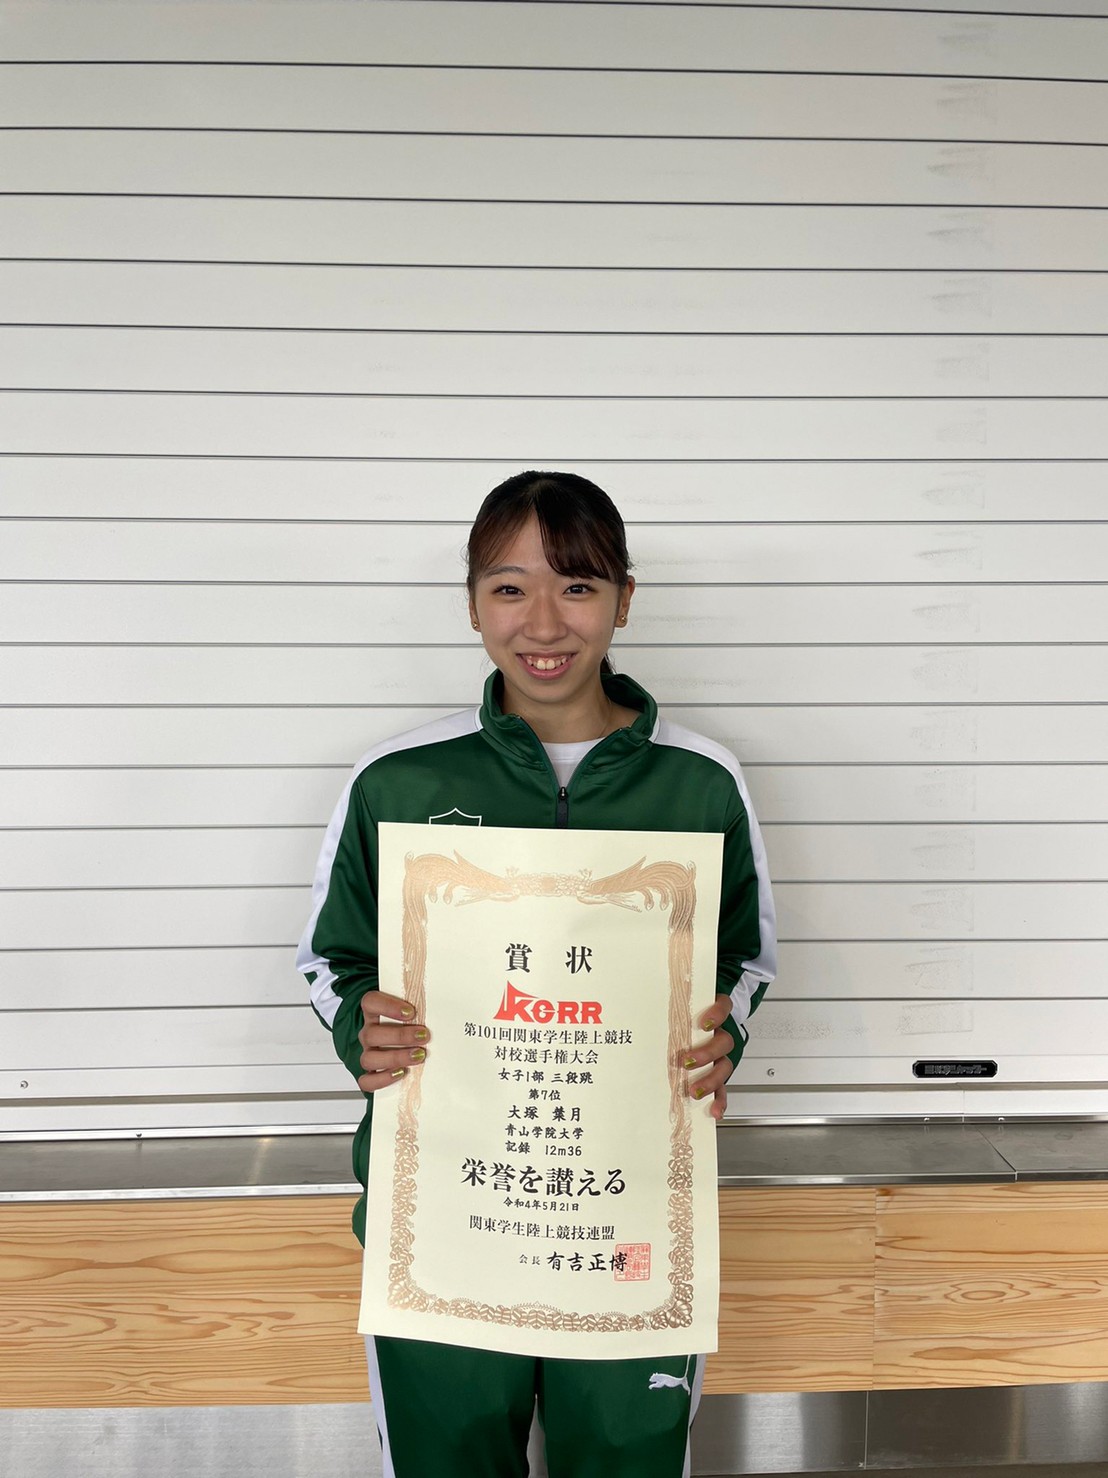 賞状
KGRR
第101回関東学生陸上競技
対校選手権大会
女子1部 三段跳
第7位
大塚 葉月
青山学院大学
記録 12m36
栄誉を讃える
令和4年5月21日
関東学生陸上競技連盟
会長 有吉正博